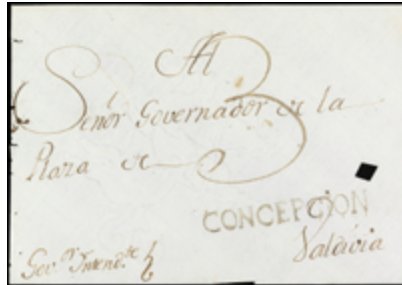 Al
Señor Governador de la
Plaza de
CONCEPCION
Valdivia
Gov.or Intend.te